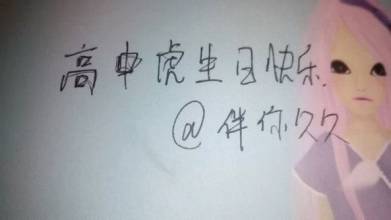 高申虎生日快乐
@伴你久久